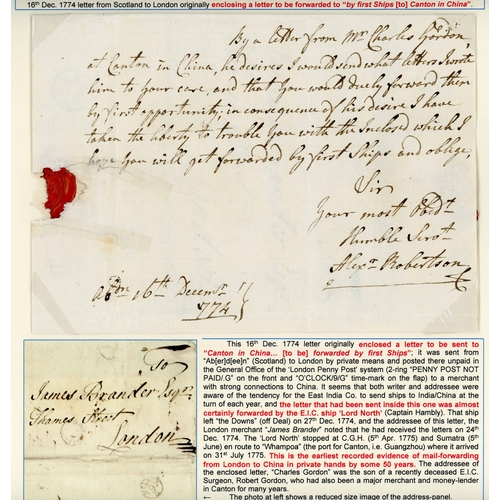 16th Dec. 1774 letter from Scotland to London originally enclosing a letter to be forwarded to "by first Ships [to] Canton in China".
By a letter from Mr. Charles Gordon
at Canton in China, he desires I would send what letters I wrote
him to your care, and that You would duely forward them
by first opportunity; in consequence of his desire I have
taken the liberty to trouble You with the Inclosed which I
hope You will get forwarded by first Ships and oblige,
Sir
Your most Obedt.
Humble Servt.
Alexr. Robertson
Abdn. 16th Decemr.
1774
To
James Brander Esqr.
Thames Street
London
This 16th Dec. 1774 letter originally enclosed a letter to be sent to
"Canton in China... [to be] forwarded by first Ships"; it was sent from
"Ab[er]d[ee]n" (Scotland) to London by private means and posted there unpaid in
the General Office of the 'London Penny Post' system (2-ring "PENNY POST NOT
PAID/.G" on the front and "O'CLOCK/9/G" time-mark on the flap) to a merchant
with strong connections to China. It seems that both writer and addressee were
aware of the tendency for the East India Co. to send ships to India/China at the
turn of each year, and the letter that had been sent inside this one was almost
certainly forwarded by the E.I.C. ship 'Lord North' (Captain Hambly). That ship
left "the Downs" (off Deal) on 27th Dec. 1774, and the addressee of this letter, the
London merchant "James Brander" noted that he had received the letters on 24th
Dec. 1774. The 'Lord North' stopped at C.G.H. (5th Apr. 1775) and Sumatra (5th
June) en route to "Whampoa" (the port for Canton, i.e. Guangzhou) where it arrived
on 31st July 1775. This is the earliest recorded evidence of mail-forwarding
from London to China in private hands by some 50 years. The addressee of
the enclosed letter, "Charles Gordon" was the son of a recently deceased E.I.C.
Surgeon, Robert Gordon, who had also been a major merchant and money-lender
in Canton for many years.
← The photo at left shows a reduced size image of the address-panel.